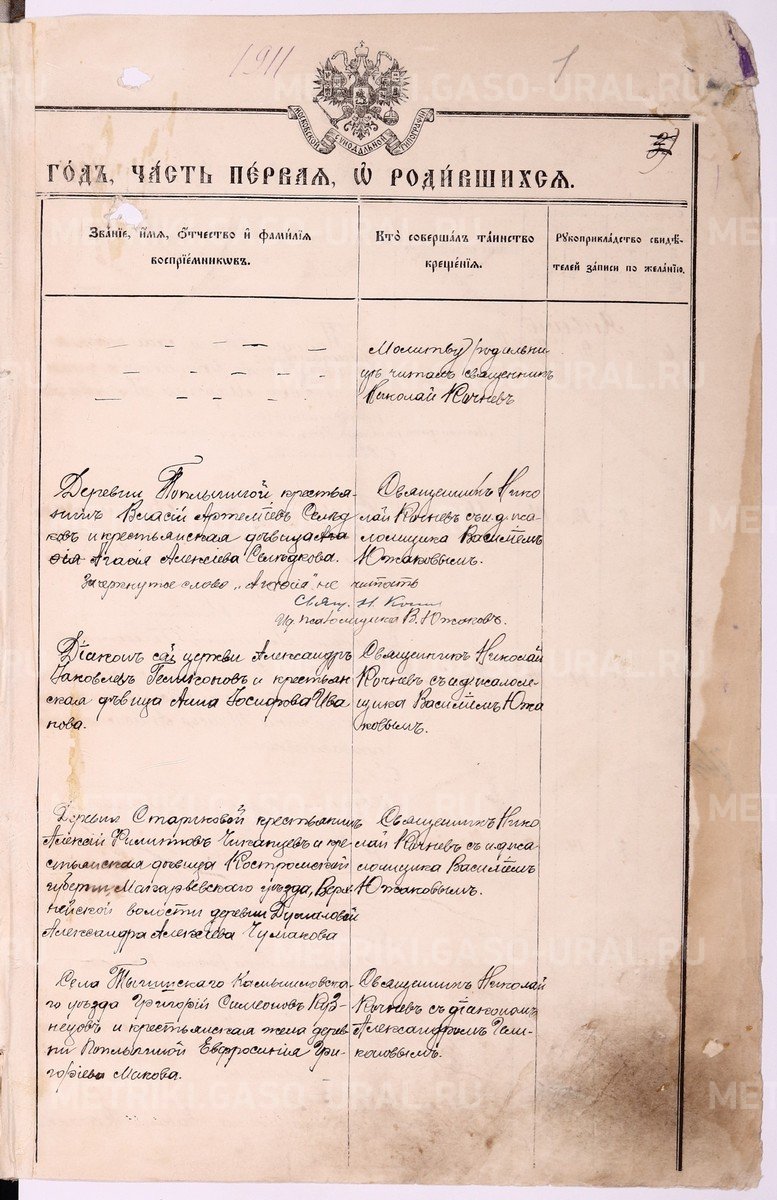 1911
1
МОСКОВСКОЙ СѴНОДАЛЬНОЙ ТИПОГРАФІИ
ГО́ДЪ, ЧА́СТЬ ПЕ́РВАЯ, Ѡ҆ РОДИ́ВШИХСЯ.
Зва́нїе, и҆́мѧ, ѻ҆́тчество и҆ фами́лїѧ
воспрїе́мникѡвъ.
Кто̀ соверша́лъ та́инство
креще́нїѧ.
Рукоприкла́дство свидѣ́-
телей за́писи по жела́нїю.
Молитву родильни
цѣ читалъ священникъ
Николай Кочневъ
Деревни крестья-
нинъ Власій Артеміевъ Сельд
ковъ и крестьянская дѣвица Ага
фія Агафія Алексіева Сельдкова.
Зачеркнутое слово „Агафія" не читать
Свящ. Н. Кочн
И. д. псаломщика В. Южаковъ.
Священникъ Нико
лай Кочневъ съ и. д. пса-
ломщика Василіемъ
Южаковымъ.
Діаконъ сей церкви Александръ
Іаковлевъ Геликоновъ и крестьян
ская дѣвица Анна Іосифова Ива
нова.
Священникъ Николай
Кочневъ съ и. д. псалом-
щика Василіемъ Южа
ковымъ.
Деревни Стариковой крестьянинъ
Алексій Филипповъ и кре
стьянская дѣвица Костромской
губерніи Макарьевскаго уѣзда, Верх
нейской волости деревни
Александра Алексіева Чумакова
Священникъ Нико
лай Кочневъ съ и. д. пса
ломщика Василіемъ
Южаковымъ.
Села Камышловска
го уѣзда Григорій Симеоновъ Куз
нецовъ и крестьянская жена дерев
ни Евфросинія Гри-
горіева Макова.
Священникъ Николай
Кочневъ съ діакономъ
Александромъ Гели-
коновымъ.
METRIKI.GASO-URAL.RU